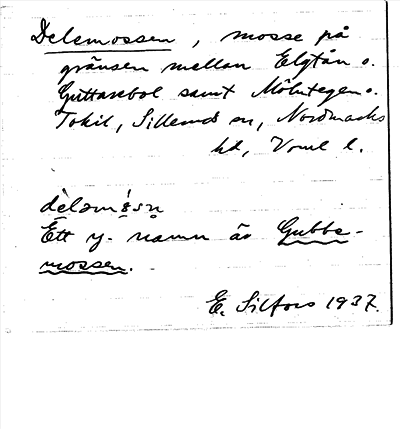 Delemossen, mosse på
gränsen mellan Elgtån o.
Guttarebol samt Mölntegen o.
Tokil, Sillemds sn, Nordmarks
hd, Vrml l.
dèlam
Ett y. namn är Gubbe-
mossen.
E. Silfors 1937.